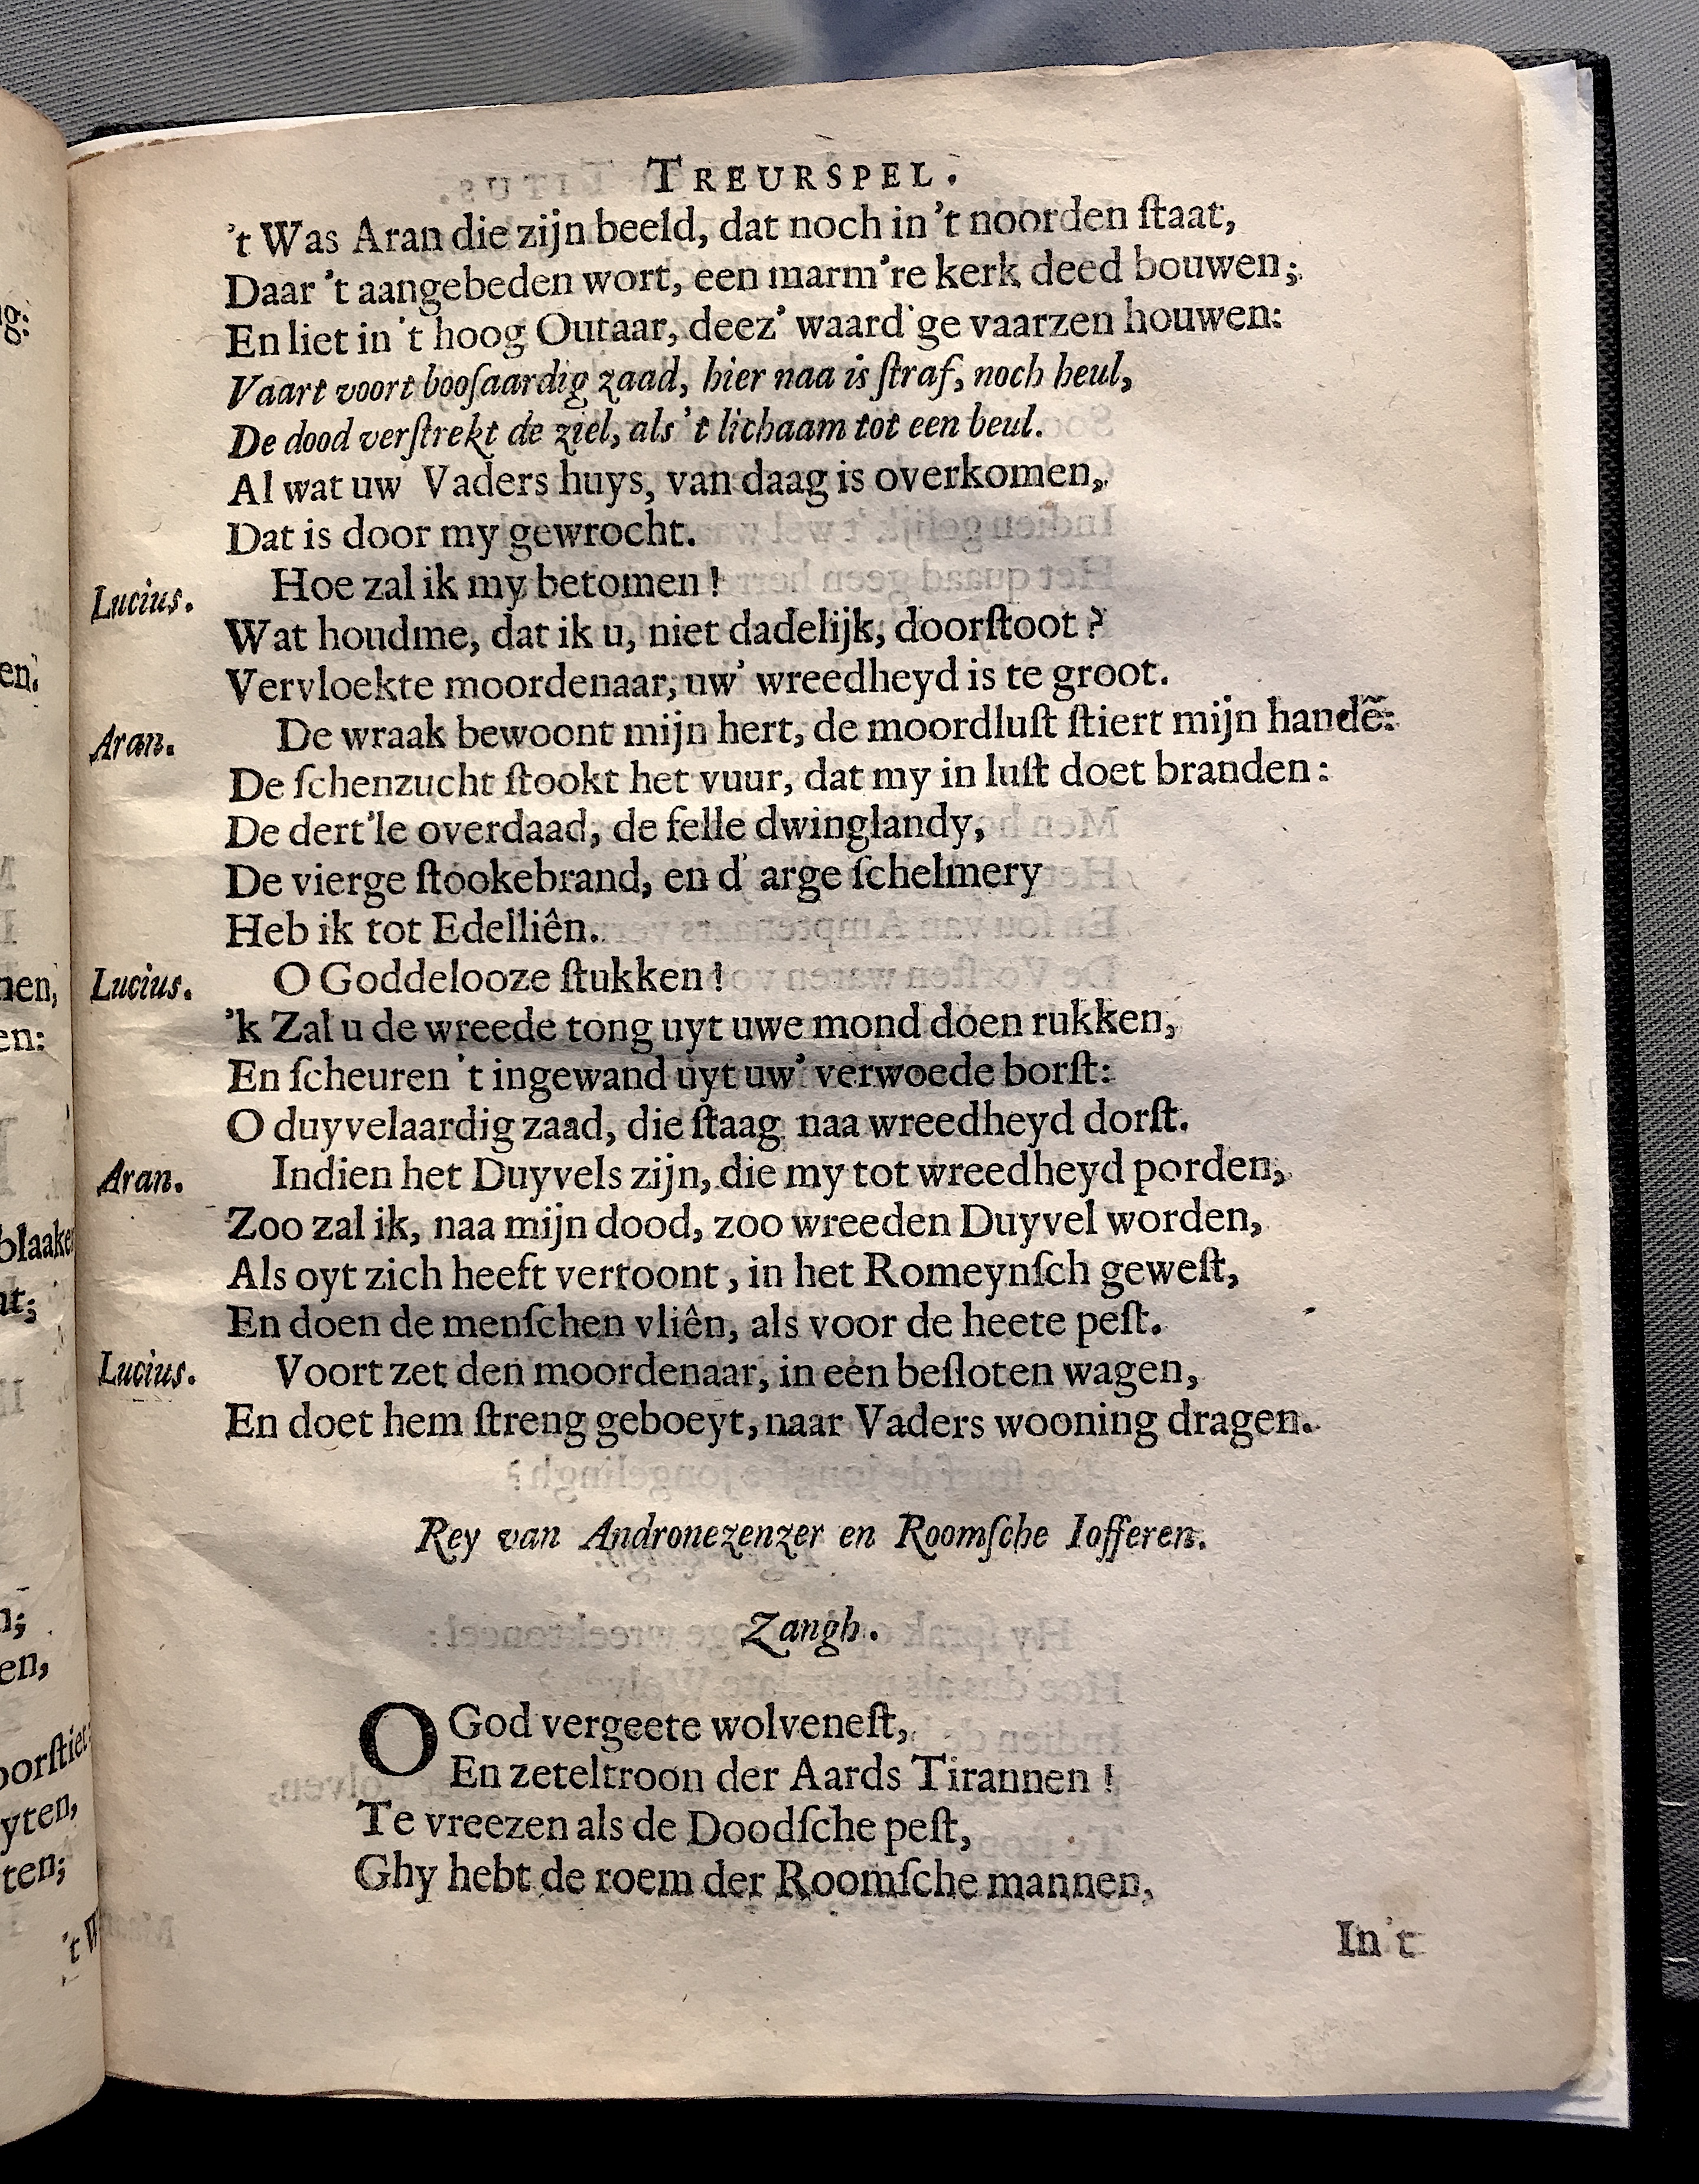 TREURSPEL.
't Was Aran die zijn beeld, dat noch in 't noorden ſtaat,
Daar 't aangebeden wort, een marm're kerk deed bouwen;
En liet in 't hoog Outaar, deez' waard'ge vaarzen houwen:
Vaart voort booſaardig zaad, hier naa is ſtraf, noch heul,
De dood verſtrekt de ziel, als 't lichaam tot een beul.
Al wat uw Vaders huys, van daag is overkomen,
Dat is door my gewrocht.
Lucius. Hoe zal ik my betomen!
Wat houdme, dat ik u, niet dadelijk, doorſtoot?
Vervloekte moordenaar, uw' wreedheyd is te groot.
Aran. De wraak bewoont mijn hert, de moordluſt ſtiert mijn handẽ:
De ſchenzucht ſtookt het vuur, dat my in luſt doet branden:
De dert'le overdaad, de felle dwinglandy,
De vierge ſtookebrand, en d' arge ſchelmery
Heb ik tot Edelliên.
Lucius. O Goddelooze ſtukken!
'k Zal u de wreede tong uyt uwe mond doen rukken,
En ſcheuren 't ingewand uyt uw' verwoede borſt:
O duyvelaardig zaad, die ſtaag naa wreedheyd dorſt.
Aran. Indien het Duyvels zijn, die my tot wreedheyd porden,
Zoo zal ik, naa mijn dood, zoo wreeden Duyvel worden,
Als oyt zich heeft vertoont, in het Romeynſch geweſt,
En doen de menſchen vliên, als voor de heete peſt.
Lucius. Voort zet den moordenaar, in een beſloten wagen,
En doet hem ſtreng geboeyt, naar Vaders wooning dragen.
Rey van Andronezenzer en Roomſche Iofferen.
Zangh.
O God vergeete wolveneſt,
En zeteltroon der Aards Tirannen!
Te vreezen als de Doodſche peſt,
Ghy hebt de roem der Roomſche mannen,
In 't